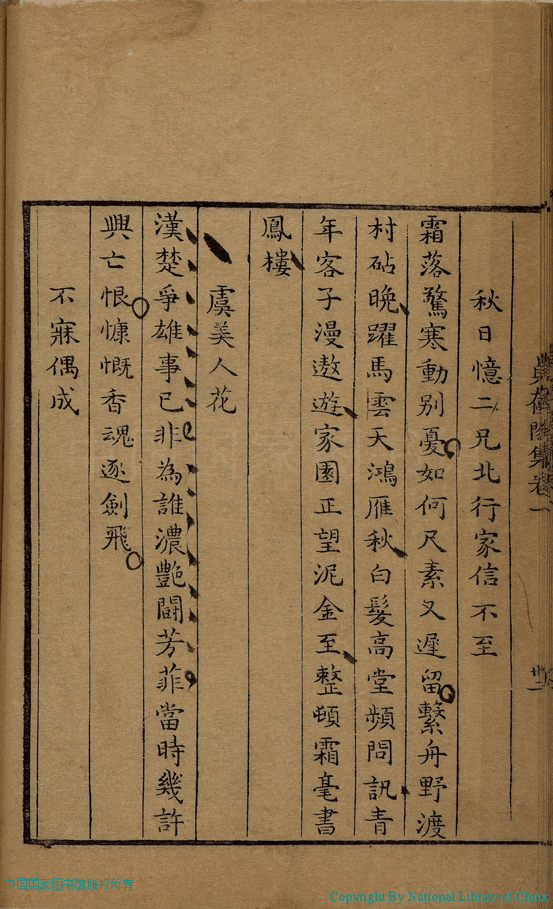 秋日憶二兄北行家信不至
霜落驚寒動別憂如何尺素又遲留繫舟野渡
村砧晚躍馬雲天鴻雁秋白髮高堂頻問訊青
年客子漫遨遊家園正望泥金至整頓霜毫書
鳳樓
虞美人花
漢楚爭雄事已非為誰濃艷鬪芳菲當時幾許
興亡恨慷慨香魂逐劍飛
不寐偶成
Copyright By National Library of China